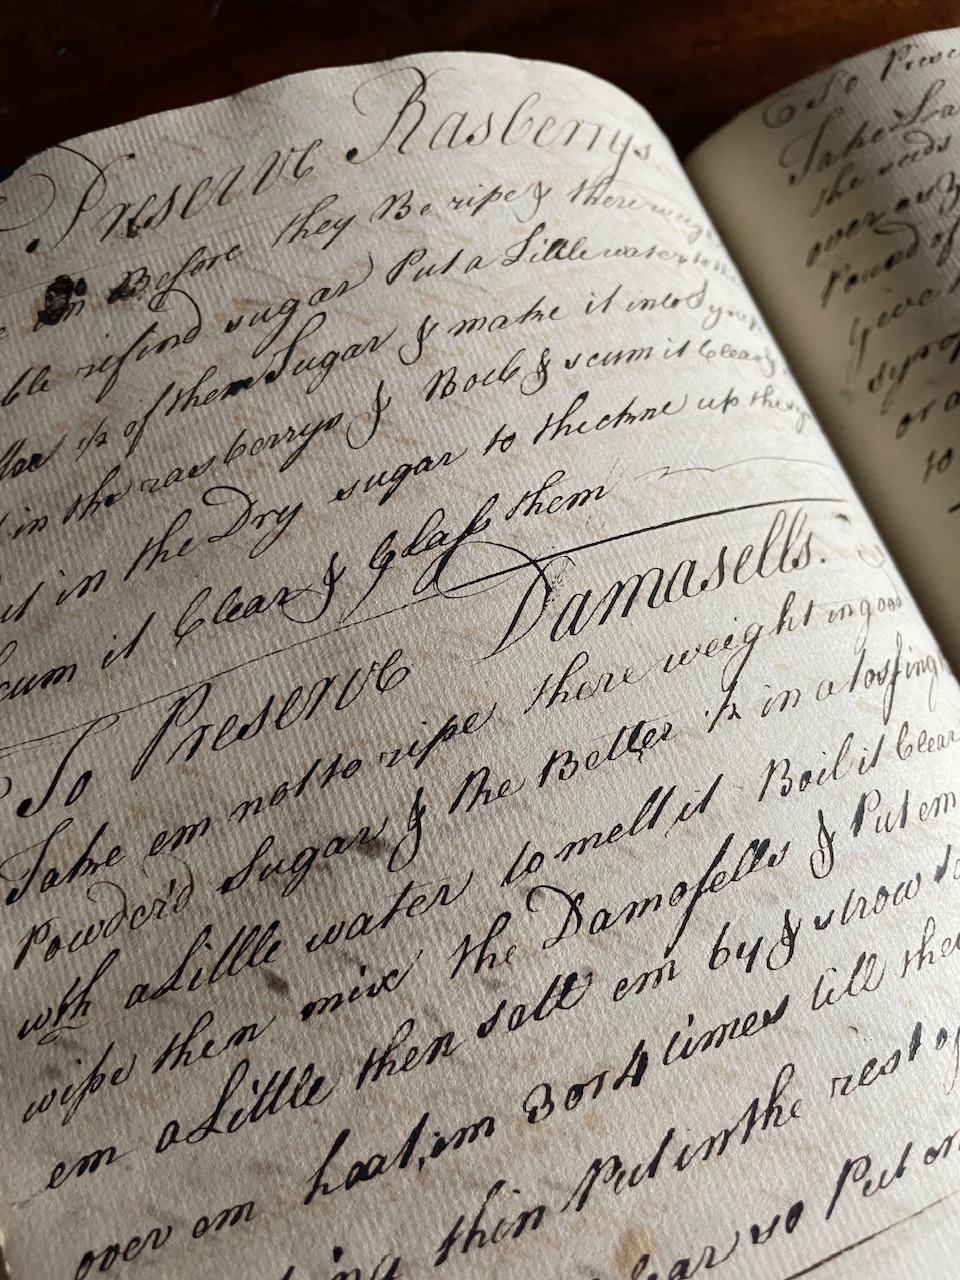 Preserve Rasberrys
em Before they Be ripe & there weight
ble rifind sugar Put a Little water to the
of them Sugar & make it into
in the rasberrys & Boile & scum it Clear
in the Dry sugar to thickne up the
scum it Clear & Glass them
To Preserve Damasells.
Take em not to ripe there weight in good
Powder'd Sugar & the Better 1/2 in a tossing
wth a Little water to melt it Boil it Clear
wipe then mix the Damosells & Put em
em a Little then sett em by & strow
over em heat em 3 or 4 times till the
thin Put in the rest of
so Put
To Preser
Take
the seeds
over
Pound of
syrop
or a
to